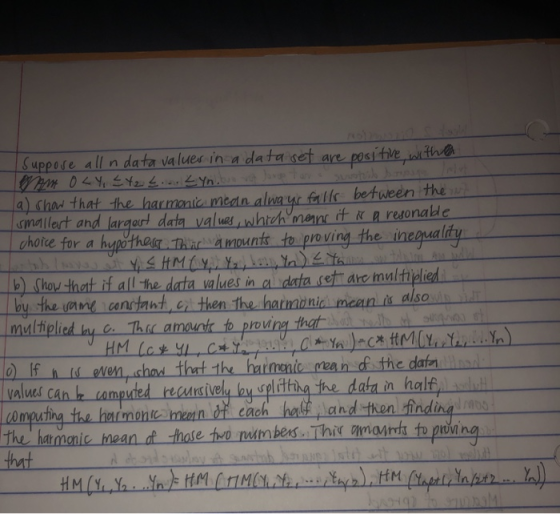 Suppose all n data values in a data set are positive, with
0 < Y1 ≤ Y2 ≤ ... ≤ Yn.
a) show that the harmonic mean always falls between the
smallest and largest data values, which means it is a resonable
choice for a hypothesis. This amounts to proving the inequality
Y1 ≤ HM(Y1, Y2, ..., Yn) ≤ Yn
b) Show that if all the data values in a data set are multiplied
by the same constant, c, then the harmonic mean is also
multiplied by c. This amounts to proving that
HM (C * Y1, C * Y2, ....., C * Yn) = C * HM(Y1, Y2, ... Yn)
c) If n is even, show that the harmonic mean of the data
values can be computed recursively by splitting the data in half,
computing the harmonic mean of each half, and then finding
the harmonic mean of those two numbers. This amounts to proving
that
HM(Y1, Y2 ... Yn) = HM ( HM(Y1, Y2, ..., Yn/2), HM (Yn/2+1, Yn/2+2 ... Yn))